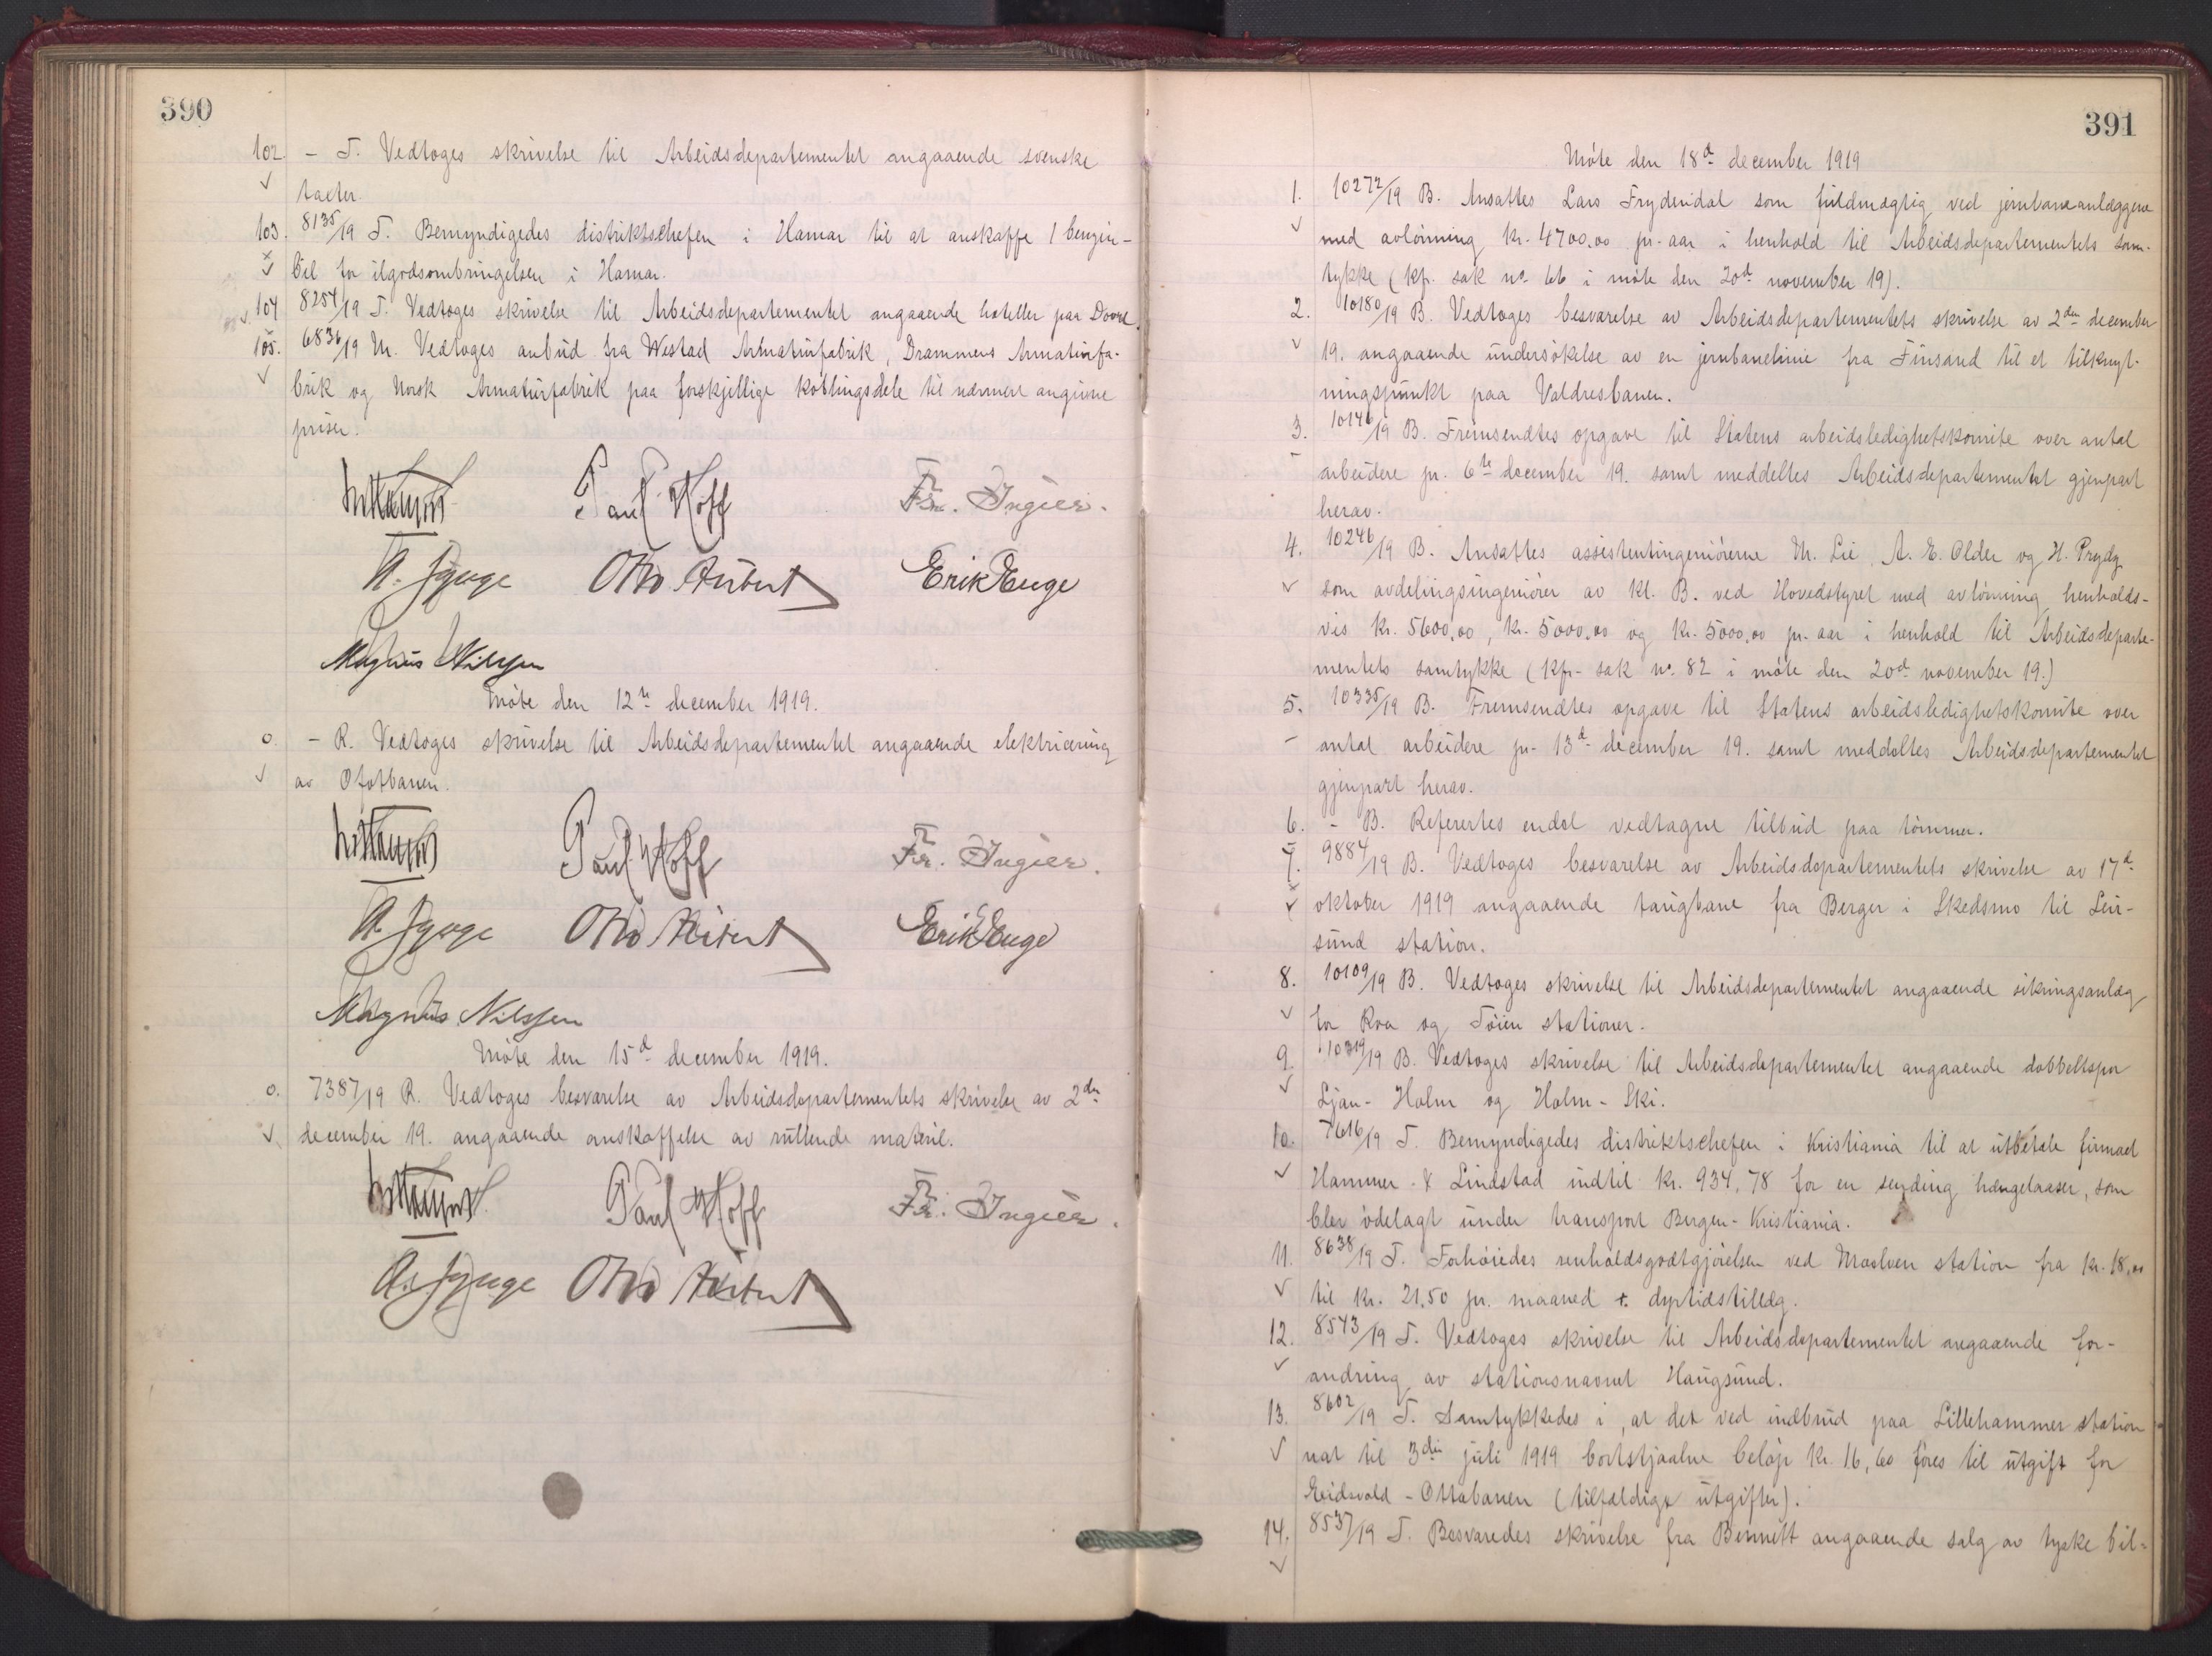 390
102. - T. Vedtoges skrivelse til Arbeidsdepartementet angaaende svenske
taxter.
103. 8135/19 T. Bemyndigedes distriktschefen i Hamar til at anskaffe 1 benzin-
bil for ilgodsombringelsen i Hamar.
104 8254/19 T. Vedtoges skrivelse til Arbeidsdepartementet angaaende hoteller paa Dovre.
105. 6836/19 M. Vedtoges anbud fra Westad Armaturfabrik, Drammens Armaturfa-
brik og Norsk Armaturfabrik paa forskjellige koblingsdele til nærmere angivne
priser.
Paul Hoff Fr. Ingier.
Otto Aubert Erik Enge
Magnus Nilssen
Møte den 12te december 1919.
0. - R. Vedtoges skrivelse til Arbeidsdepartementet angaaende elektricering
av Ofotbanen.
Paul Hoff Fr. Ingier.
Otto Aubert Erik Enge
Magnus Nilssen
Møte den 15d december 1919.
0. 7387/19 R. Vedtoges besvarelse av Arbeidsdepartementets skrivelse av 2den
december 19. angaaende anskaffelse av rullende materiel.
Paul Hoff Fr. Ingier.
Otto Aubert
391
Møte den 18d december 1919
1. 10272/19 B. Ansattes Lars Frydendal som fuldmægtig ved jernbaneanlæggene
med avlønning kr. 4700.00 pr. aar i henhold til Arbeidsdepartementets sam-
tykke (kfr. sak no 66 i møte den 20d november 19).
2. 10180/19 B. Vedtoges besvarelse av Arbeidsdepartementets skrivelse av 2den december
19. angaaende undersøkelse av en jernbanelinie fra Finsand til et tilknyt-
ningspunkt paa Valdresbanen.
3. 10146/19 B. Fremsendtes opgave til Statens arbeidsledighetskomite over antal
arbeidere pr. 6te december 19. samt meddeltes Arbeidsdepartementet gjenpart
herav.
4. 10246/19 B. Ansattes assistentingeniørerne M. Lie, A. E. Older og H. Prydz
som avdelingsingeniører av kl. B. ved Hovedstyret med avlønning henholds-
vis kr. 5600,00, kr. 5000,00 og kr. 5000,00 pr. aar i henhold til Arbeidsdeparte-
mentets samtykke (kfr. sak no. 82 i møte den 20d november 19.)
5. 10335/19 B. Fremsendtes opgave til Statens arbeidsledighetskomite over
antal arbeidere pr. 13d december 19. samt meddeltes Arbeidsdepartementet
gjenpart herav.
6. - B. Referertes endel vedtagne tilbud paa tømmer.
7. 9884/19 B. Vedtoges besvarelse av Arbeidsdepartementets skrivelse av 17d
oktober 1919 angaaende taugbane fra Berger i Skedsmo til Leir-
sund station.
8. 10109/19 B. Vedtoges skrivelse til Arbeidsdepartementet angaaende sikringsanlæg
for Roa og Tøien stationer.
9. 10319/19 B. Vedtoges skrivelse til Arbeidsdepartementet angaaende dobbeltspor
Ljan - Holm og Holm - Ski.
10. 7616/19 T. Bemyndigedes distriktschefen i Kristiania til at utbetale firmaet
Hammer & Lindstad indtil kr. 934,78 for en sending hængelaaser, som
blev ødelagt under transport Bergen - Kristiania.
11. 8638/19 T. Forhøiedes renholdsgodtgjørelsen ved Moelven station fra kr. 18,00
til kr. 21.50 pr. maaned + dyrtidstillæg.
12. 8543/19 T. Vedtoges skrivelse til Arbeidsdepartementet angaaende for-
andring av stationsnavnet Haugsund.
13. 8602/19 T. Samtykkedes i, at det ved indbrud paa Lillehammer station
nat til 3die juli 1919 bortstjaalne beløp kr. 16,60 føres til utgift for
Eidsvold - Ottabanen (tilfældige utgifter).
14. 8537/19 T. Besvaredes skrivelse fra Bennett angaaende salg av tyske bil-